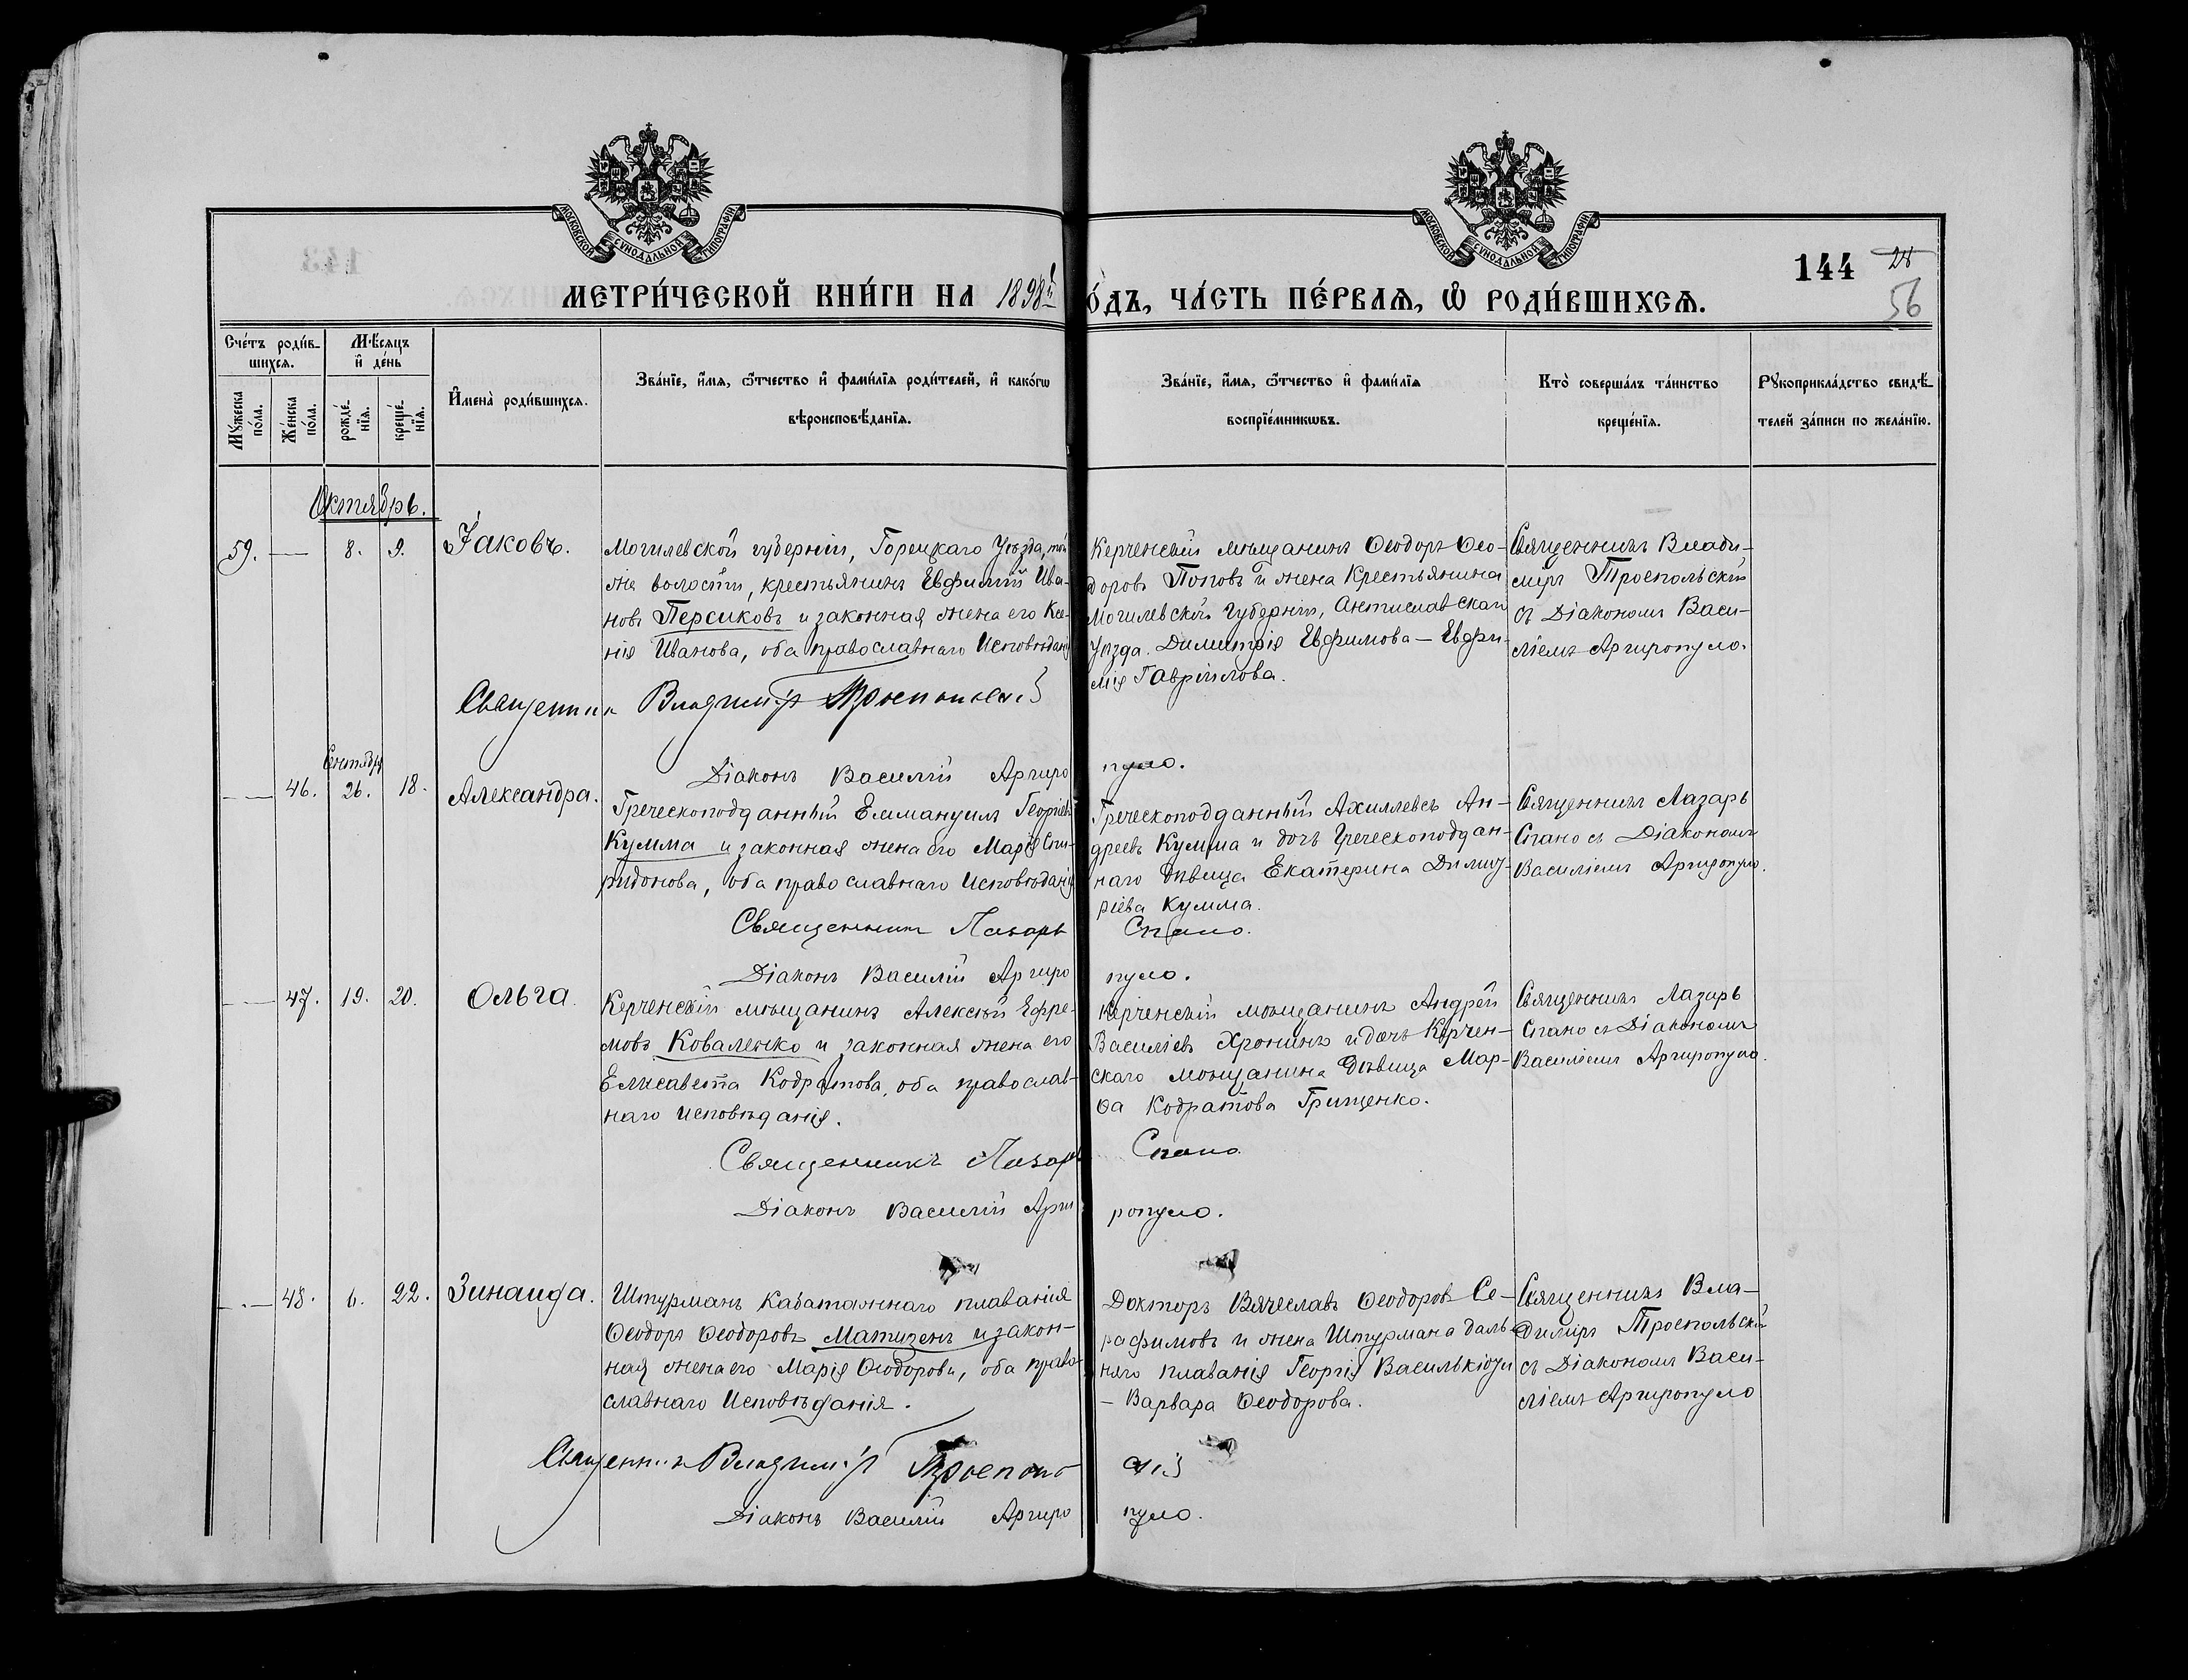 МОСКОВСКОЙ СѴНОДАЛЬНОЙ ТИПОГРАФІИ
МОСКОВСКОЙ СѴНОДАЛЬНОЙ ТИПОГРАФІИ
144 28
56
МЕТРИ́ЧЕСКОЙ КНИ́ГИ НА 1898й
ГО́ДЪ, ЧА́СТЬ ПЕ́РВАѦ, Ѡ҆ РОДИ́ВШИХСѦ.
Сче́тъ роди́в-
шихсѧ.
Мѣ́сѧцъ
и҆ де́нь
Мꙋ́жеска по́ла.
Же́нска по́ла.
рожде́-
нїѧ.
креще́-
нїѧ.
И҆мена̀ роди́вшихсѧ.
Зва́нїе, и҆́мѧ, ѻ҆́тчество и҆ фами́лїѧ роди́телей, и҆ како́гѡ
вѣроисповѣ́данїѧ.
Зва́нїе, и҆́мѧ, ѻ҆́тчество и҆ фами́лїѧ
воспрїе́мникѡвъ.
Кто̀ соверша́лъ та́инство
креще́нїѧ.
Рꙋкоприкла́дство свидѣ́-
телей за́писи по жела́нїю.
Октябрь.
59. — 8. 9. Іаковъ.
Могилевской губерніи, Горецкаго Уѣзда, той
же волости, крестьянинъ Евфимій Ива-
новъ Персиковъ и законная жена его Ксе-
нія Иванова, оба православнаго Исповѣданія
Керченскій мѣщанинъ Ѳеодоръ Ѳео-
доровъ Поповъ и жена Крестьянина
Могилевской Губерніи, Амтиславскаго
Уѣзда Димитрія Евфимова — Евфи-
мія Гавріилова.
Священникъ Влади-
міръ Троепольскій
съ Діакономъ Васи-
ліемъ Аргиропуло.
Священник Владимір Троепольскій
Діаконъ Василій Аргиропуло.
— 46. Сентября 26. 18. Александра.
Греческоподданный Еммануилъ Георгіевъ
Кумма и законная жена его Марія Спи-
ридонова, оба православнаго Исповѣданія
Греческоподданный Ахиллевсъ Ан-
дреевъ Кумма и дочь Греческоподдан-
наго дѣвица Екатерина Димит-
ріева Кумма.
Священникъ Лазарь
Спано съ Діакономъ
Василіемъ Аргиропуло.
Священникъ Лазарь Спано.
Діаконъ Василій Аргиропуло.
— 47. 19. 20. Ольга
Керченскій мѣщанинъ Алексѣй Ефре-
мовъ Коваленко и законная жена его
Елисавета Кодратова, оба православ-
наго Исповѣданія.
Керченскій мѣщанинъ Андрей
Василіевъ Хронинъ и дочь Керчен-
скаго мѣщанина дѣвица Мар-
ѳа Кодратова Грищенко.
Священникъ Лазарь
Спано съ Діакономъ
Василіемъ Аргиропуло.
Священникъ Лазарь Спано
Діаконъ Василій Аргиропуло.
— 48. 6. 22. Зинаида.
Штурманъ Каботажнаго плаванія
Ѳеодоръ Ѳеодоровъ Матизенъ и закон-
ная жена его Марія Ѳеодорова, оба право-
славнаго Исповѣданія.
Докторъ Вячеславъ Ѳеодоровъ Се-
рафимовъ и жена Штурмана даль-
няго плаванія Георгія Василькіоти
— Варвара Ѳеодорова.
Священникъ Вла-
диміръ Троепольскій
съ Діакономъ Васи-
ліемъ Аргиропуло
Священник Владимір Троепольскій
Діаконъ Василій Аргиропуло.